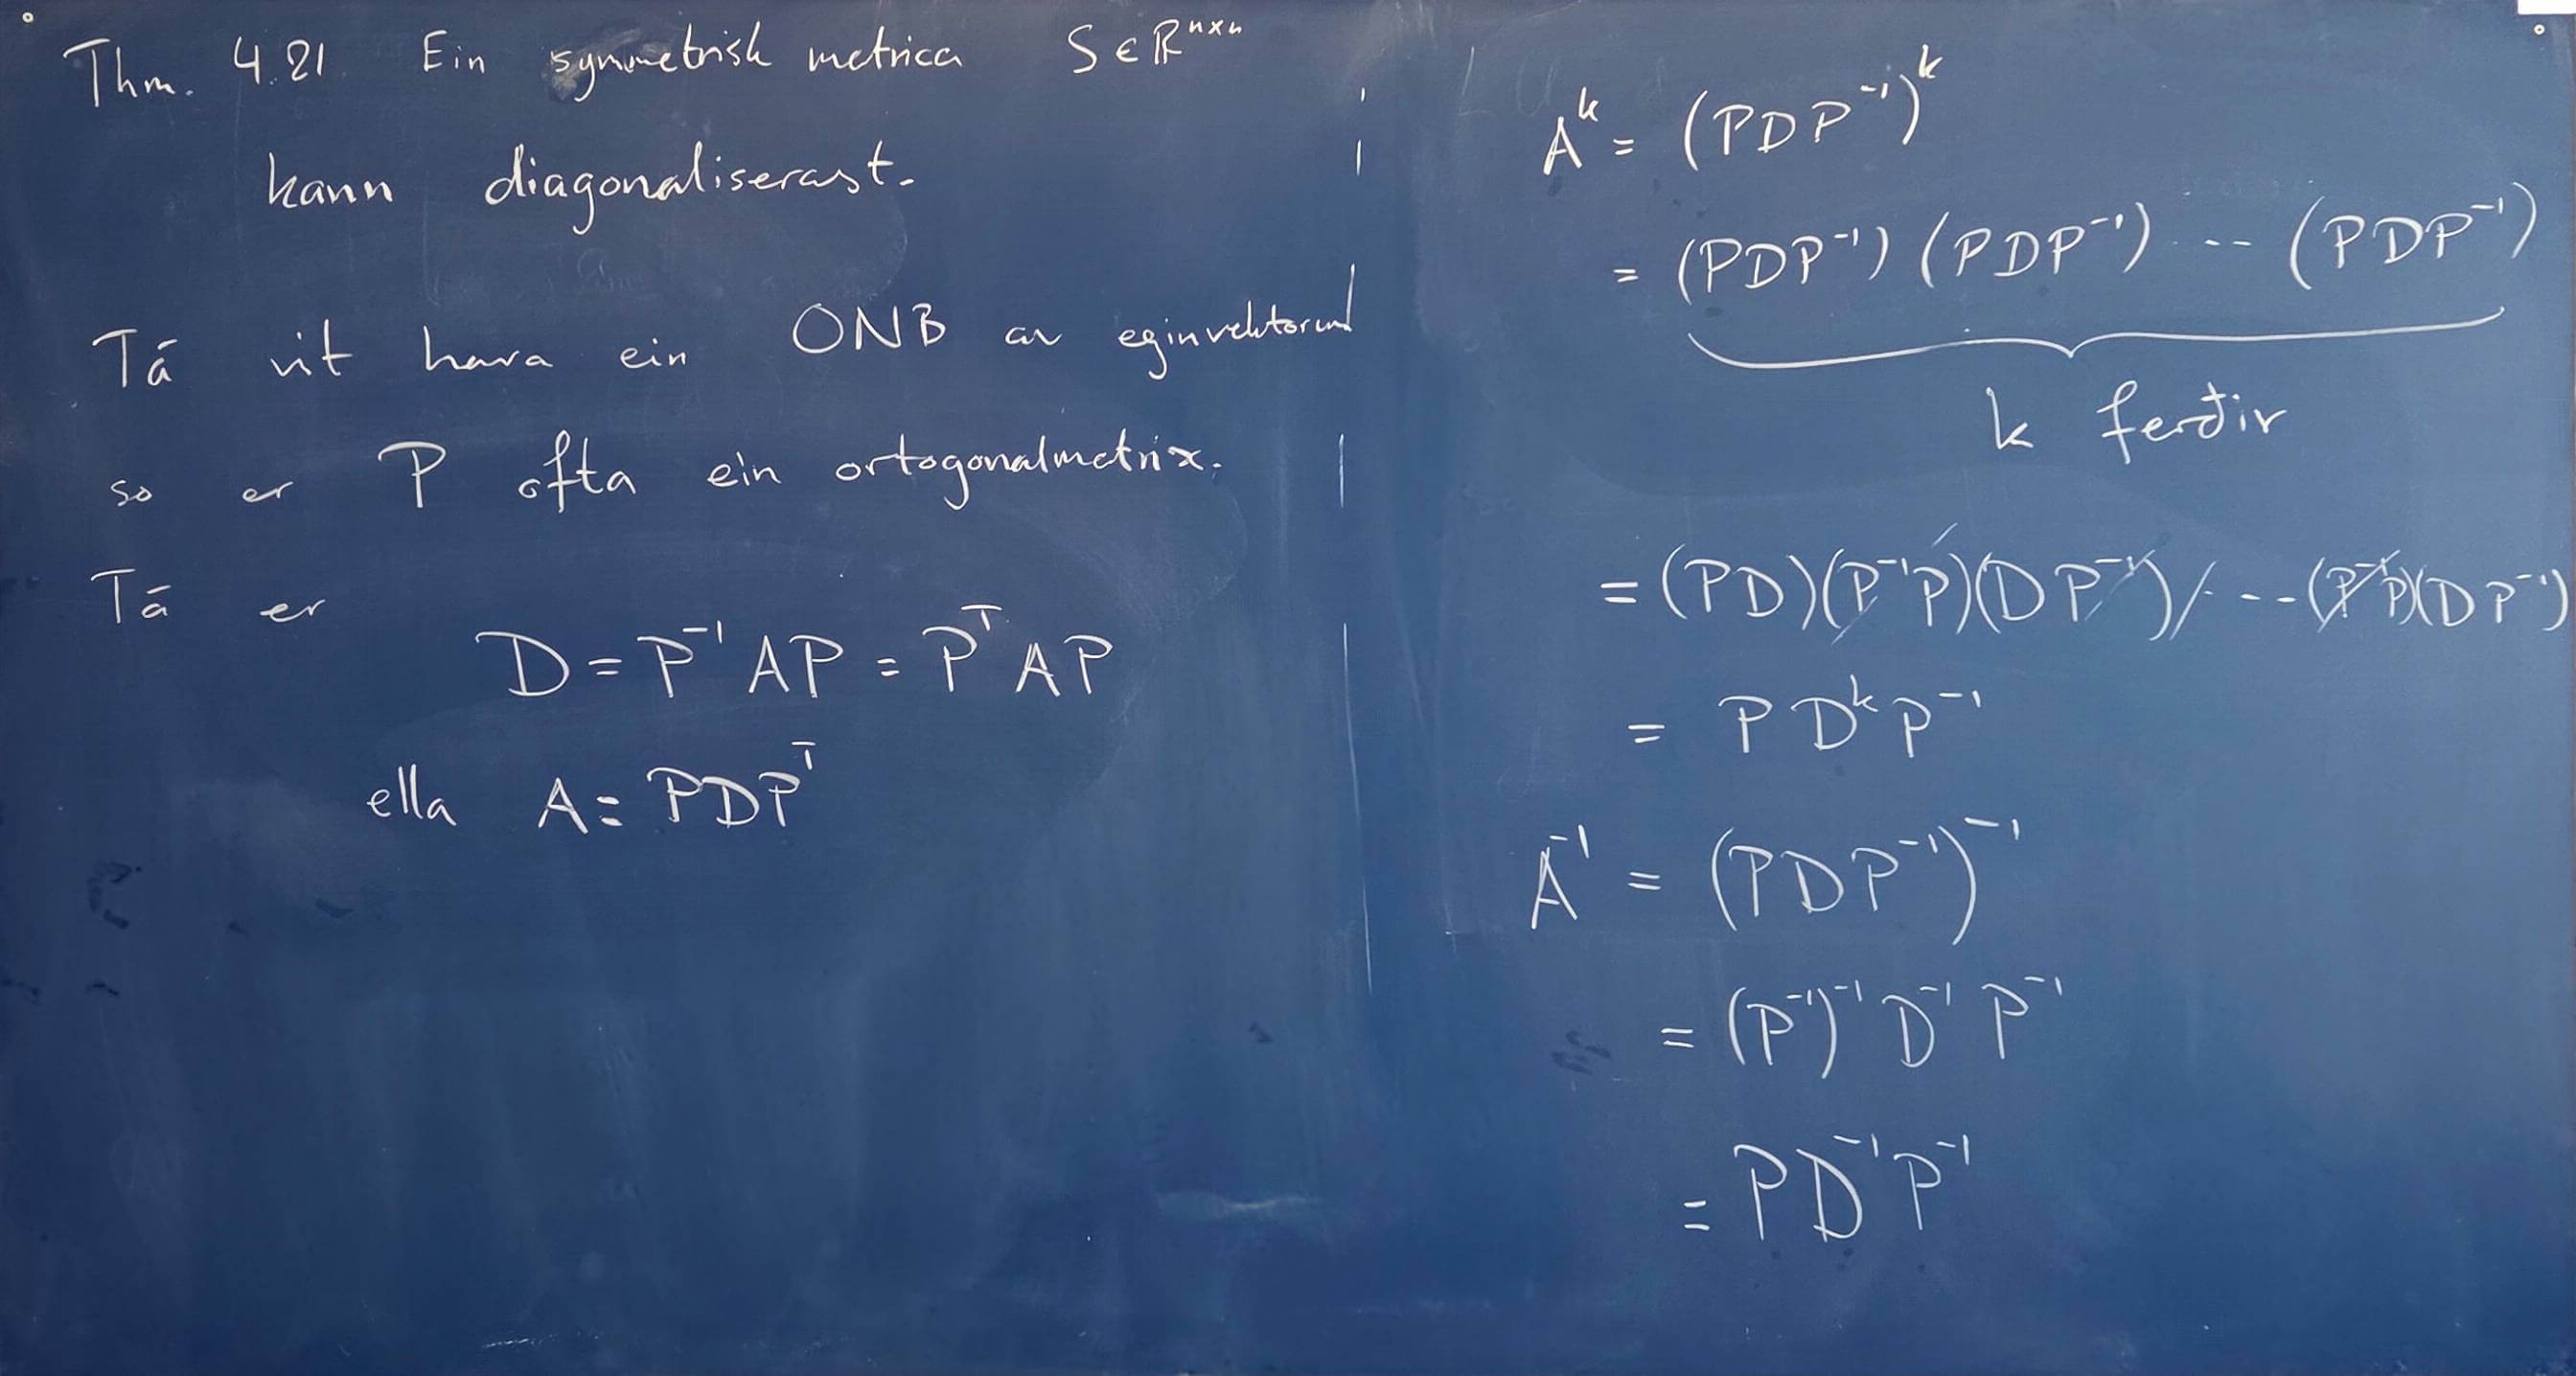 Thm. 4.21 Ein symmetrisk metrica S ∈ ℝⁿˣⁿ
kann diagonaliserast.
Tá vit hava ein ONB av eginvektorum
so er P ofta ein ortogonalmetrix.
Tá er
D = P⁻¹AP = PᵀAP
ella A = PDPᵀ
Aᵏ = (PDP⁻¹)ᵏ
= (PDP⁻¹)(PDP⁻¹) ··· (PDP⁻¹)
k ferðir
= (PD)(P⁻¹P)(DP⁻¹) ··· (P⁻¹P)(DP⁻¹)
= PDᵏP⁻¹
A⁻¹ = (PDP⁻¹)⁻¹
= (P⁻¹)⁻¹ D⁻¹ P⁻¹
= PD⁻¹P⁻¹